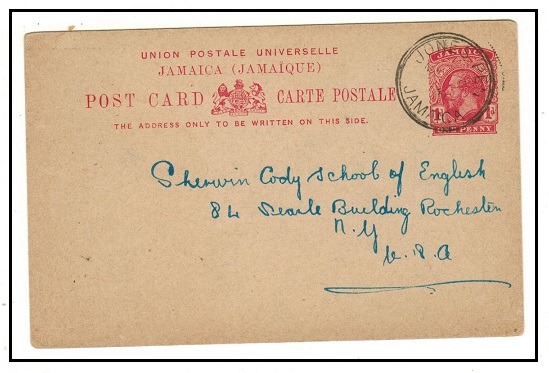 UNION POSTALE UNIVERSELLE
JAMAICA (JAMAÏQUE)
POST CARD CARTE POSTALE
THE ADDRESS ONLY TO BE WRITTEN ON THIS SIDE.
JAMAICA
1D PENNY 1D
JAMAICA
Sherwin Cody School of English
84 Searle Building Rochester
N. Y
U. S. A